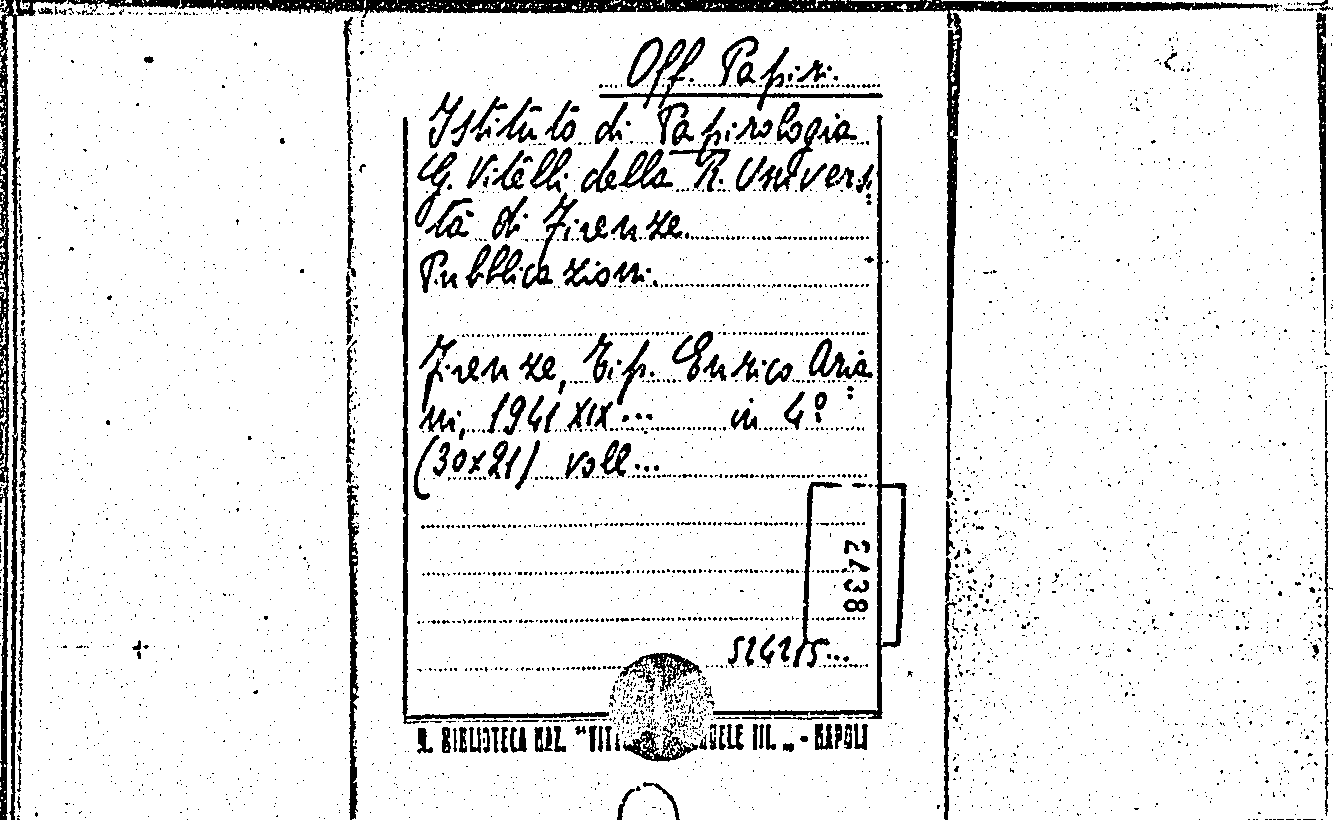 Off. Papiri.
Istituto di Papirologia
G. Vitelli della R. Universi
tà di Firenze.
Pubblicazioni.
Firenze, Tip. Enrico Aria
ni, 1941 XIX... in 4º
(30x21) voll...
2438
524215...
R. BIBLIOTECA NAZ. "VITT UELE III. „ - NAPOLI